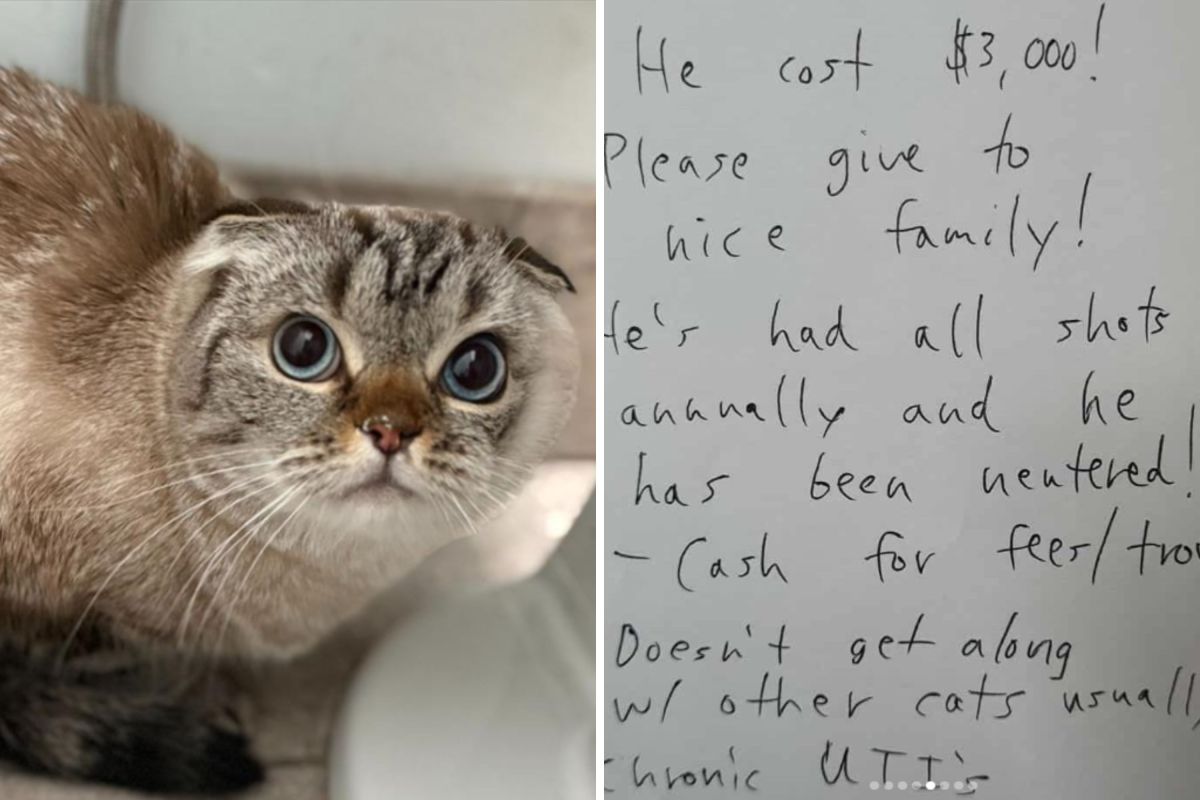 He cost $3,000!
Please give to
nice family!
He's had all shots
annually and he
has been neutered!
- Cash for fees/
Doesn't get along
w/ other cats
Chronic UTI's